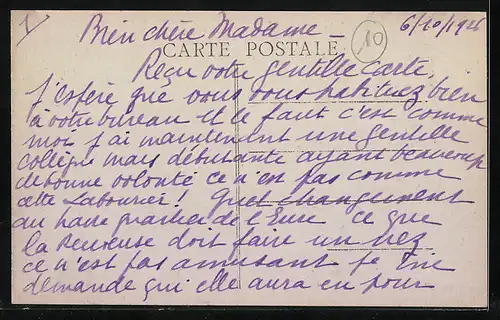 1/ 6/10/1926
Bien chère Madame _ 10
CARTE POSTALE
Reçu votre gentille carte,
j'espère que vous vous habituez bien
à votre bureau il le faut c'est comme
moi j'ai maintenant une gentille
collègue mais débutante ayant beaucoup
de bonne volonté ce n'est pas comme
cette Labourier! Quel changement
au haut quartier de l'Eure ce que
la Receveuse doit faire un nez
ce n'est pas amusant je me
demande qui elle aura en pour